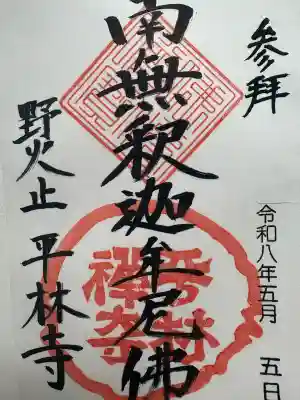 参拝
令和八年五月 五日
南無釈迦牟尼佛
平林
禅寺
野火止 平林寺